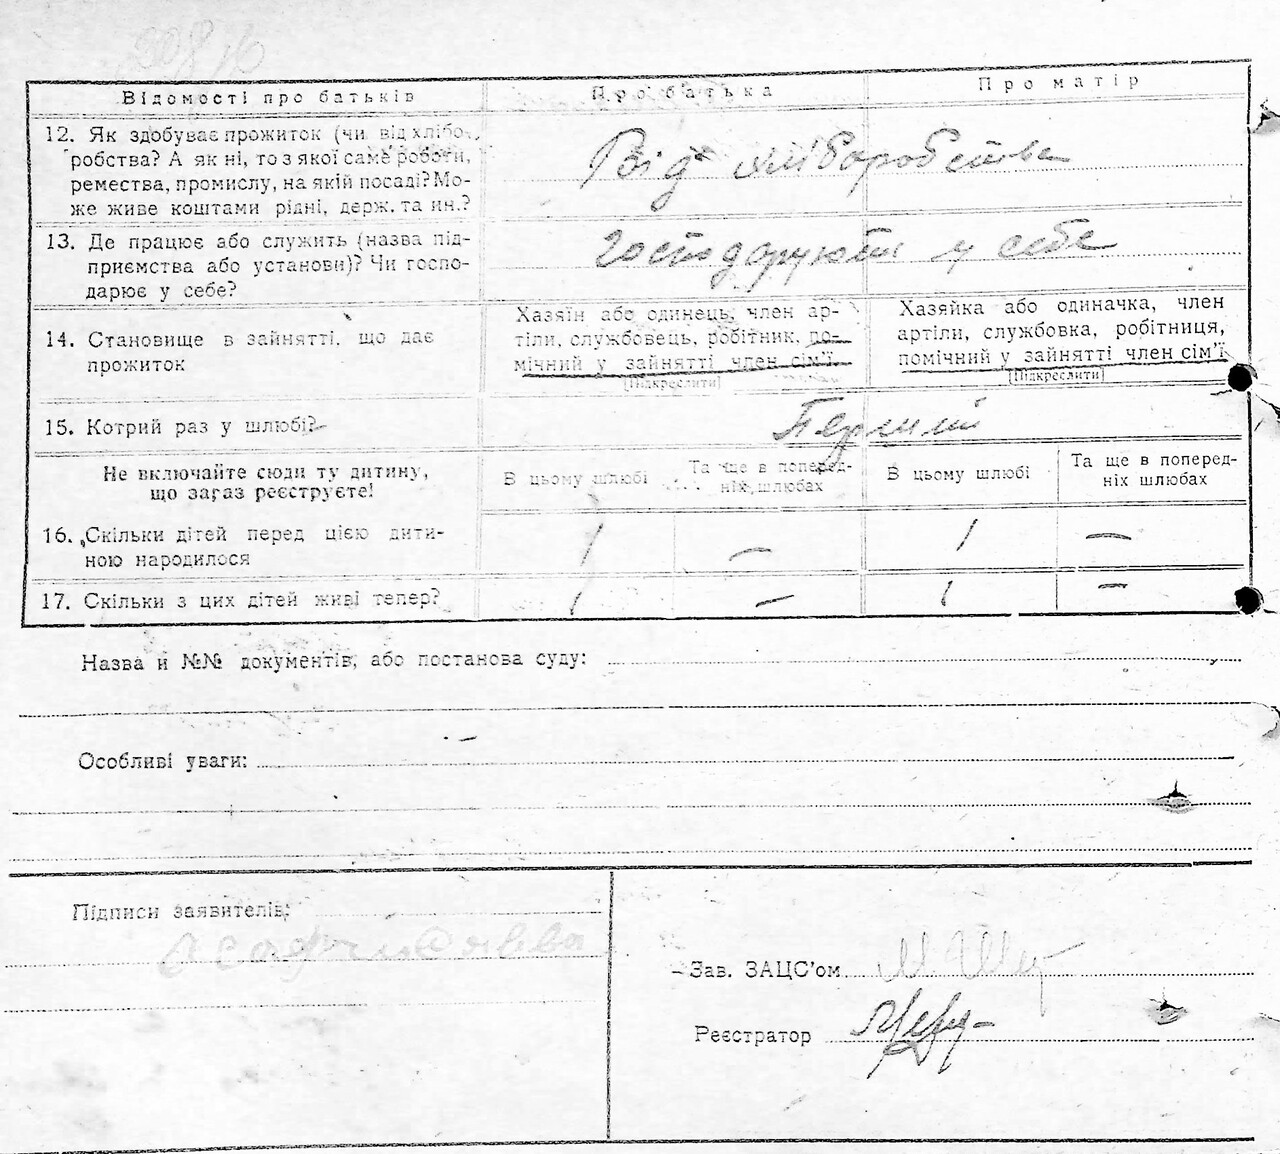 Відомості про батьків Про батька Про матір
12. Як здобуває прожиток (чи від хлібо-
робства? А як ні, то з якої саме роботи,
ремества, промислу, на якій посаді? Мо-
же живе коштами рідні, держ. та ин.?
Від хліборобства
13. Де працює або служить (назва під-
приємства або установи)? Чи госпо-
дарює у себе?
Господарують у себе
14. Становище в зайнятті, що дає
прожиток
Хазяїн або одинець, член ар-
тіли, службовець, робітник, по-
мічний у зайнятті член сім'ї.
(Підкреслити)
Хазяйка або одиначка, член
артіли, службовка, робітниця,
помічний у зайнятті член сім'ї
(Підкреслити)
15. Котрий раз у шлюбі?
Перший
Не включайте сюди ту дитину,
що зараз реєструєте!
В цьому шлюбі
Та ще в поперед-
ніх шлюбах
В цьому шлюбі
Та ще в поперед-
ніх шлюбах
16. Скільки дітей перед цією дити-
ною народилося
1 — 1 —
17. Скільки з цих дітей живі тепер? 1 — 1 —
Назва и №№ документів, або постанова суду:
Особливі уваги:
Підписи заявителів:
Зав. ЗАЦС'ом
Реєстратор